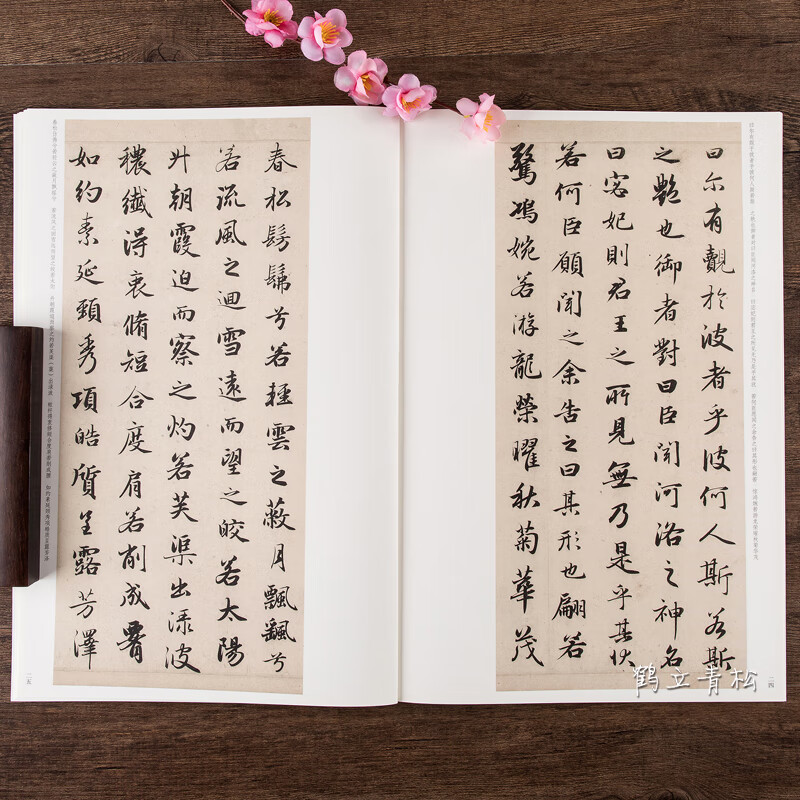 曰尔有覿於彼者乎彼何人斯若斯
之艷也御者對曰臣聞河洛之神名
曰宓妃則君王之所見無乃是乎其狀
若何臣願聞之余告之曰其形也翩若
驚鴻婉若游龍榮曜秋菊華茂
二四
春松髣髴兮若輕雲之蔽月飄飖兮
若流風之迴雪遠而望之皎若太陽
升朝霞迫而察之灼若芙渠出渌波
穠纖得衷脩短合度肩若削成腰
如約素延頸秀項皓質呈露芳澤
二五
鹤立青松